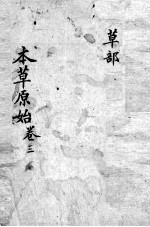 草部
本草原始卷三